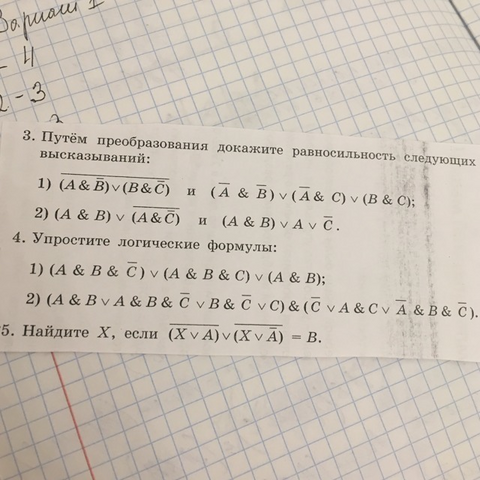 Вариант 1
- 4
2 - 3
3. Путём преобразования докажите равносильность следующих
высказываний:
1) (A̅ ̅&̅ ̅B̅̅)̅ ̅∨̅ ̅(̅B̅ ̅&̅ ̅C̅̅)̅ и (A̅ & B̅) ∨ (A̅ & C) ∨ (B & C);
2) (A & B) ∨ (̅A̅ ̅&̅ ̅C̅̅)̅ и (A & B) ∨ A ∨ C̅.
4. Упростите логические формулы:
1) (A & B & C̅) ∨ (A & B & C) ∨ (A & B);
2) (A & B ∨ A & B & C̅ ∨ B & C̅ ∨ C) & (C̅ ∨ A & C ∨ A̅ & B & C̅).
5. Найдите X, если (̅X̅ ̅∨̅ ̅A̅)̅ ∨ (̅X̅ ̅∨̅ ̅A̅̅)̅ = B.